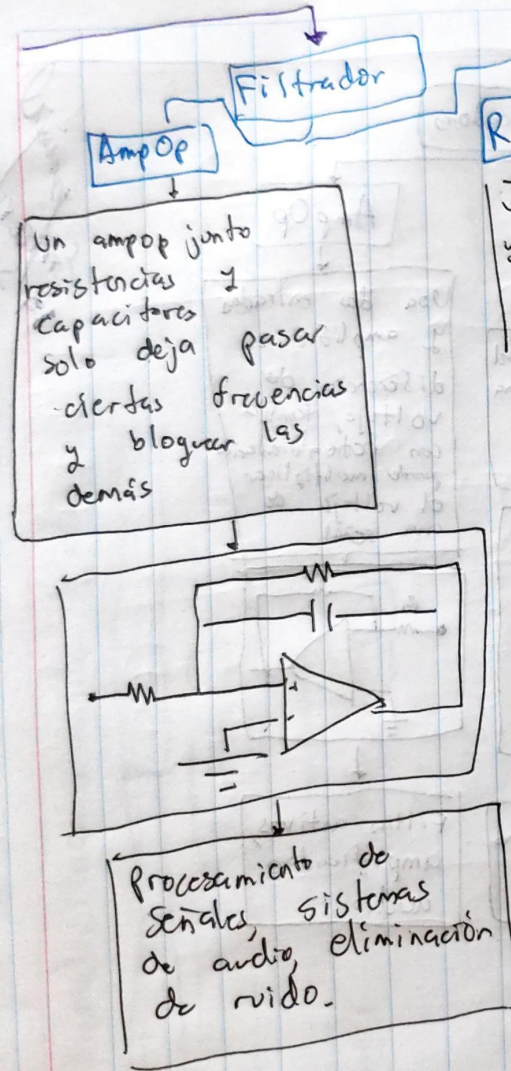 Filtrador
AmpOp
R
Un ampop junto
resistencias y
capacitores
solo deja pasar
ciertas frecuencias
y bloquear las
demás
+
-
Procesamiento de
señales, sistemas
de audio, eliminación
de ruido.